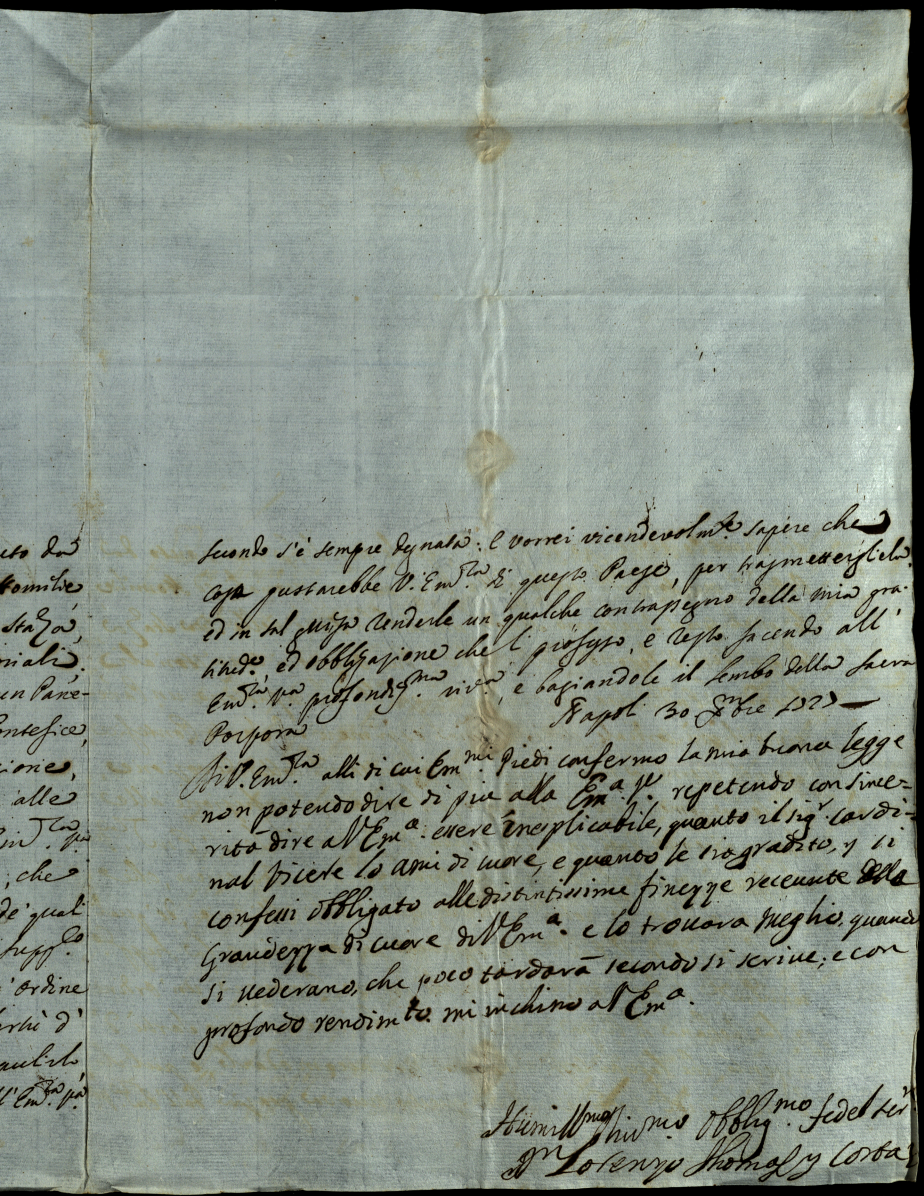 uto da
Homilie
Stazo,
niali;
un Pane-
ontefice,
cione,
alle
, che
de' quali
suppl.to
' ordine
erchè d'
l'Em.za v.ra
secondo s'è sempre degnata: E vorrei vicendevolm.te sapere che
cosa gustarebbe V. Em.za di questo Paese, per trasmettergliela
ed in tal guisa renderle un qualche contrasegno della mia gra-
titud.e, ed obbligazione che l professo, e resto facendo all'
Em.za v.ra profondiss.ma riv.a, e bagiandole il lembo della sacra
Porpora Napoli 30 Xmbre 1723
Di V. Em.za alli di cui Em.mi Piedi confermo la mia buona legge
non potendo dire di più alla Em.a repetendo con since-
rità dire a V Em.a essere inesplicabile, quanto il sig.r Cardi-
nal Vicere lo ami di cuore, e quanto le sia gradito, y si
confessi obbligato alle distintissime finezze receute della
Grandezza di cuore di V Em.a e lo trovara meglio, quando
si vederano, che poco tardarà secondo si scrive; e con
profondo rendim.to mi inchino a V Em.a.
Humill.mo Div.mo Obblig.mo fedel ser.r
Lorenzo Thomas y Costa